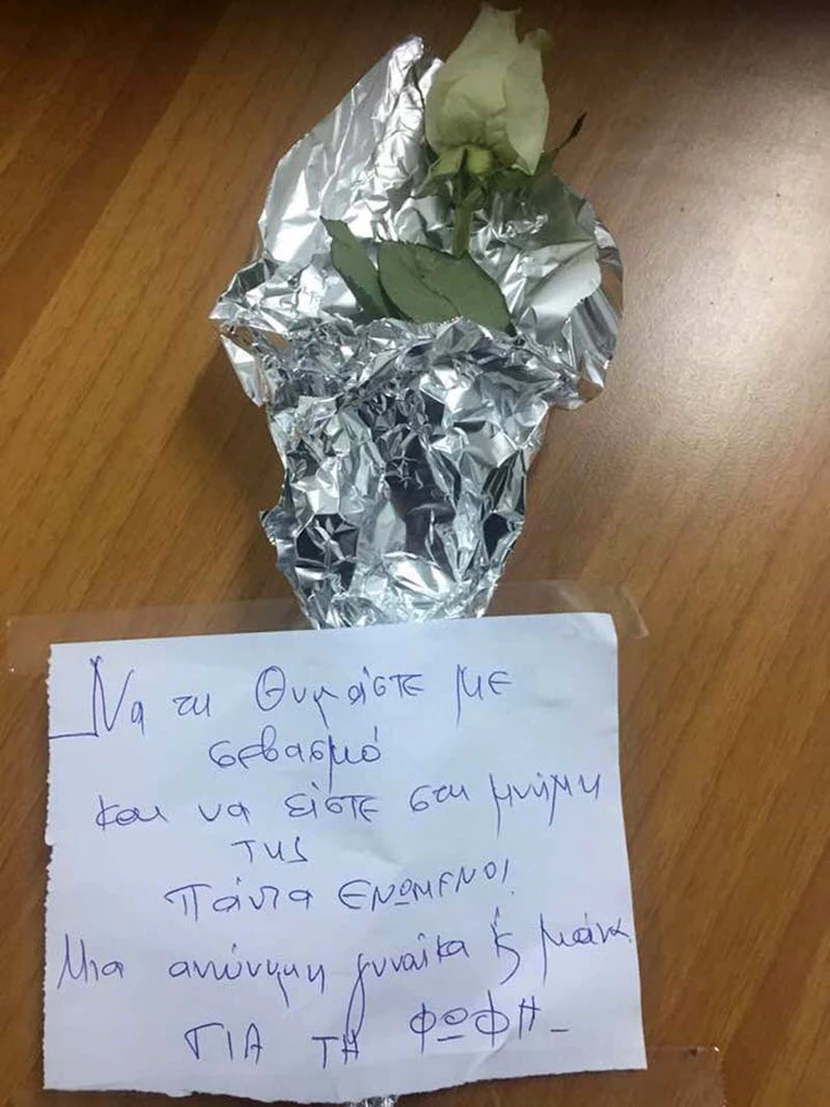 Να τη θυμάστε με
σεβασμό
και να είστε στη μνήμη
της
πάντα ΕΝΩΜΕΝΟΙ
Μια ανώνυμη γυναίκα κ́ μάνα.
ΓΙΑ ΤΗ ΦΩΦΗ_